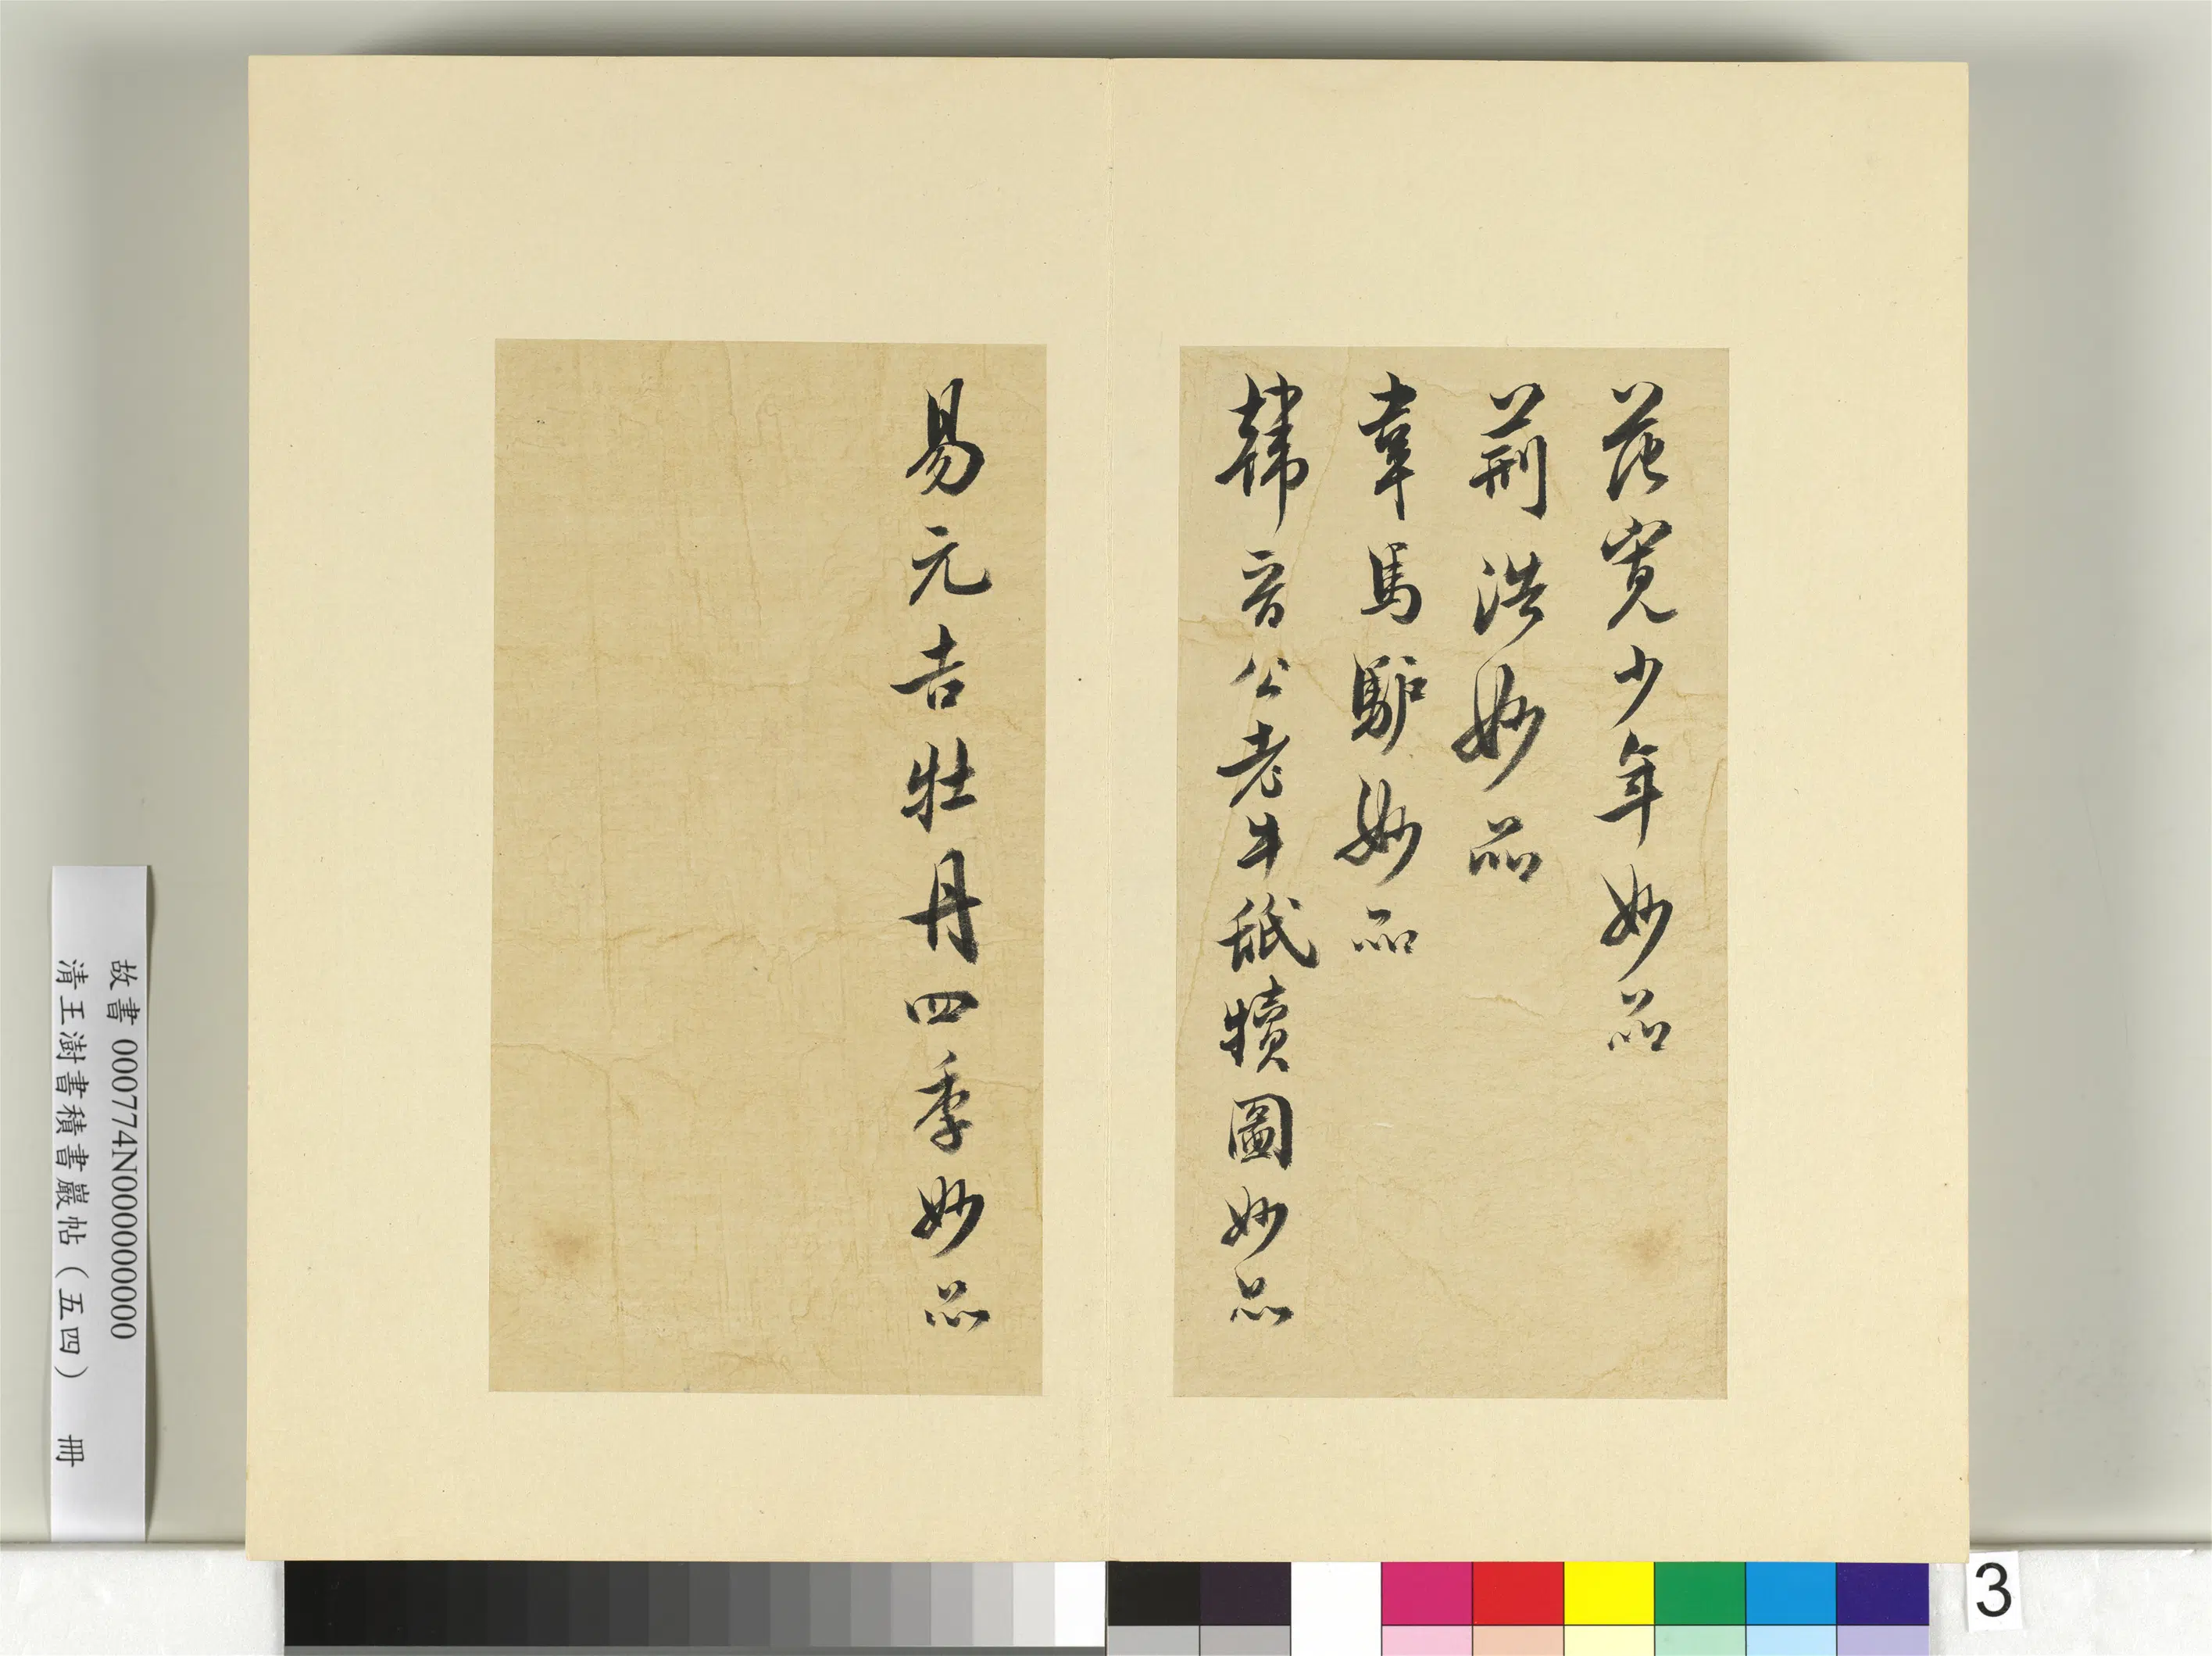 范寬少年妙品
荊浩妙品
韋馬馿妙品
韓晉公老牛舐犢圖妙品
易元吉牡丹四季妙品
故書 000774N000000000
清王澍書積書巖帖（五四） 冊
3